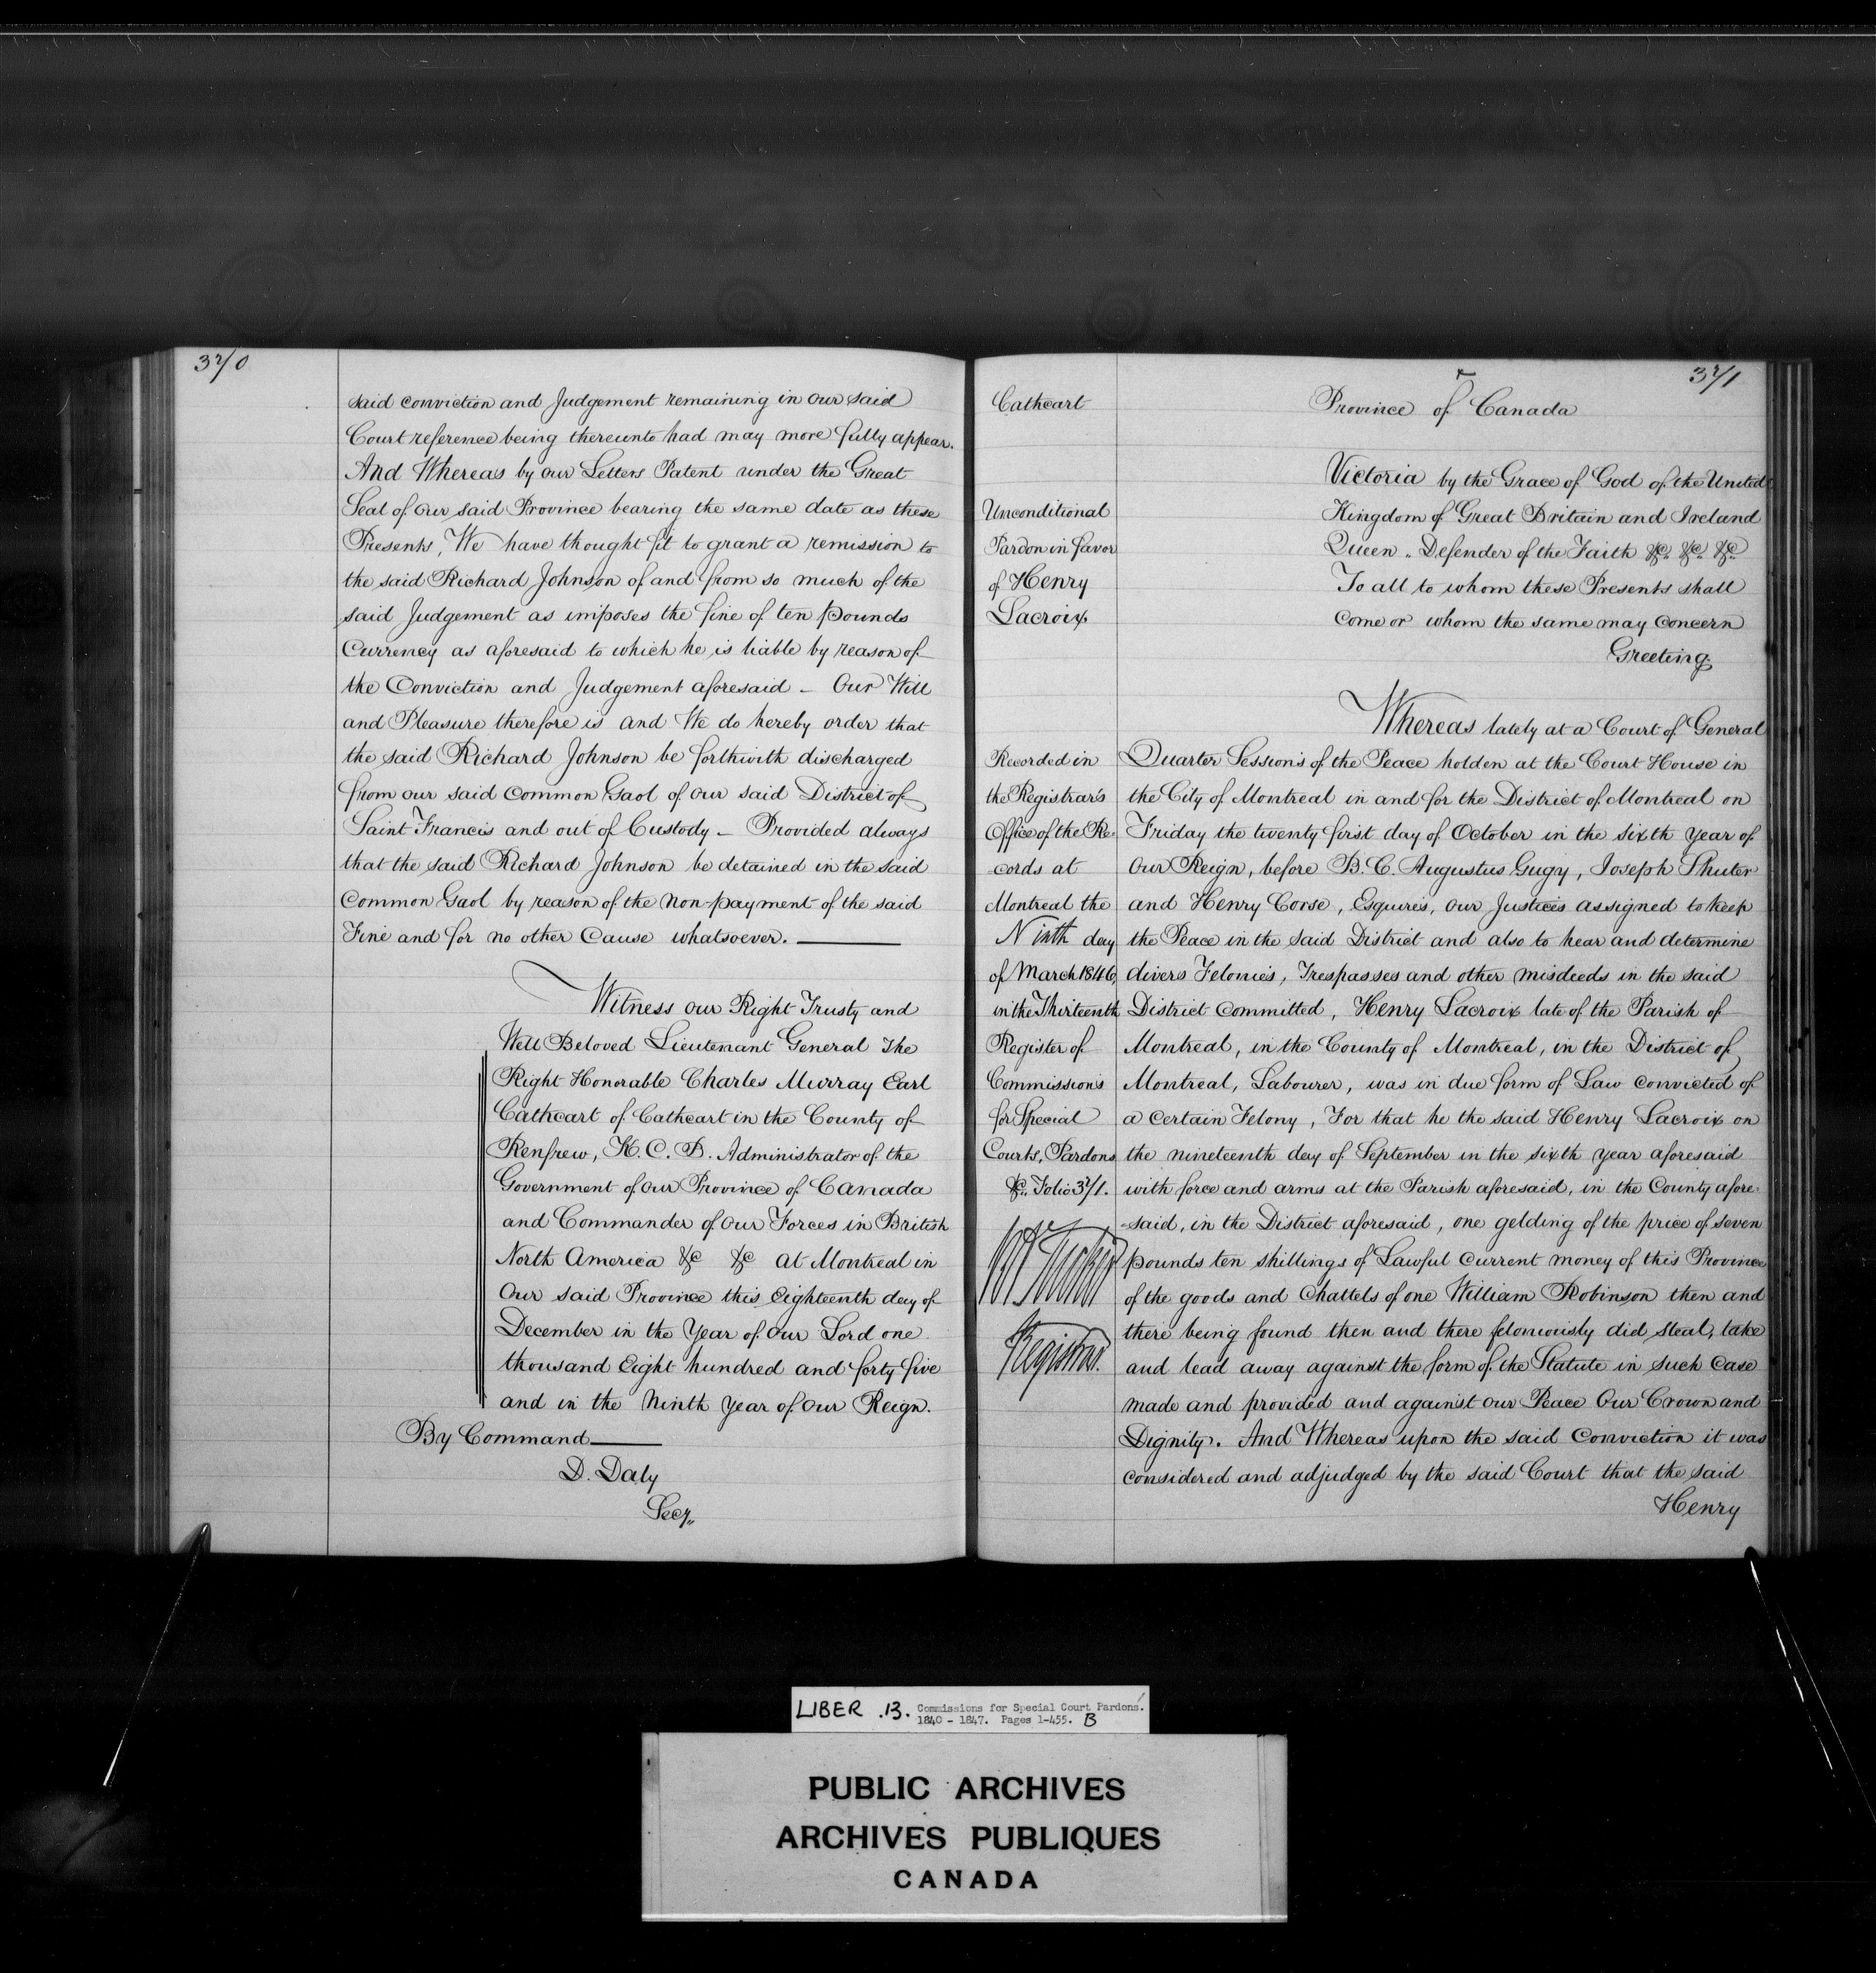 370
said conviction and Judgement remaining in our said
Court reference being thereunto had may more fully appear.
And Whereas by our Letters Patent under the Great
Seal of our said Province bearing the same date as these
Presents, We have thought fit to grant a remission to
the said Richard Johnson of and from so much of the
said Judgement as imposes the fine of ten pounds
Currency as aforesaid to which he is liable by reason of
the Conviction and Judgement aforesaid - Our Will
and Pleasure therefore is and We do hereby order that
the said Richard Johnson be forthwith discharged
from our said Common Gaol of our said District of
Saint Francis and out of Custody - Provided always
that the said Richard Johnson be detained in the said
Common Gaol by reason of the Non-payment of the said
Fine and for no other Cause whatsoever.
Witness our Right Trusty and
Well Beloved Lieutenant General The
Right Honorable Charles Murray Earl
Cathcart of Cathcart in the County of
Renfrew, K.C.B. Administrator of the
Government of our Province of Canada
and Commander of our Forces in British
North America &c &c at Montreal in
Our said Province this Eighteenth day of
December in the Year of Our Lord one
thousand Eight hundred and forty five
and in the Ninth Year of our Reign.
By Command
D. Daly
Secy.
371
Cathcart
Province of Canada
Unconditional
Pardon in favor
of Henry
Lacroix
Victoria by the Grace of God of the United
Kingdom of Great Britain and Ireland
Queen. Defender of the Faith &c. &c. &c.
To all to whom these Presents shall
Come or whom the same may Concern
Greeting.
Recorded in
the Registrar's
Office of the Re-
cords at
Montreal the
Ninth day
of March 1846,
in the Thirteenth
Register of
Commissions
for Special
Courts, Pardons
&c. Folio 371.
Registrar.
Whereas lately at a Court of General
Quarter Sessions of the Peace holden at the Court House in
the City of Montreal in and for the District of Montreal on
Friday the twenty first day of October in the sixth Year of
our Reign, before B. C. Augustus Gugy, Joseph Shuter
and Henry Corse, Esquires, our Justices assigned to keep
the Peace in the said District and also to hear and determine
divers Felonies, Trespasses and other misdeeds in the said
District Committed, Henry Lacroix late of the Parish of
Montreal, in the County of Montreal, in the District of
Montreal, Labourer, was in due form of Law convicted of
a Certain Felony, For that he the said Henry Lacroix on
the nineteenth day of September in the sixth year aforesaid
with force and arms at the Parish aforesaid, in the County afore-
-said, in the District aforesaid, one gelding of the price of seven
pounds ten shillings of Lawful Current money of this Province
of the goods and Chattels of one William Robinson then and
there being found then and there feloniously did steal, take
and lead away against the form of the Statute in such Case
made and provided and against our Peace Our Crown and
Dignity. And Whereas upon the said Conviction it was
considered and adjudged by the said Court that the said
Henry
LIBER .13. Commissions for Special Court Pardons.
1840 - 1847. Pages 1-455. B
PUBLIC ARCHIVES
ARCHIVES PUBLIQUES
CANADA